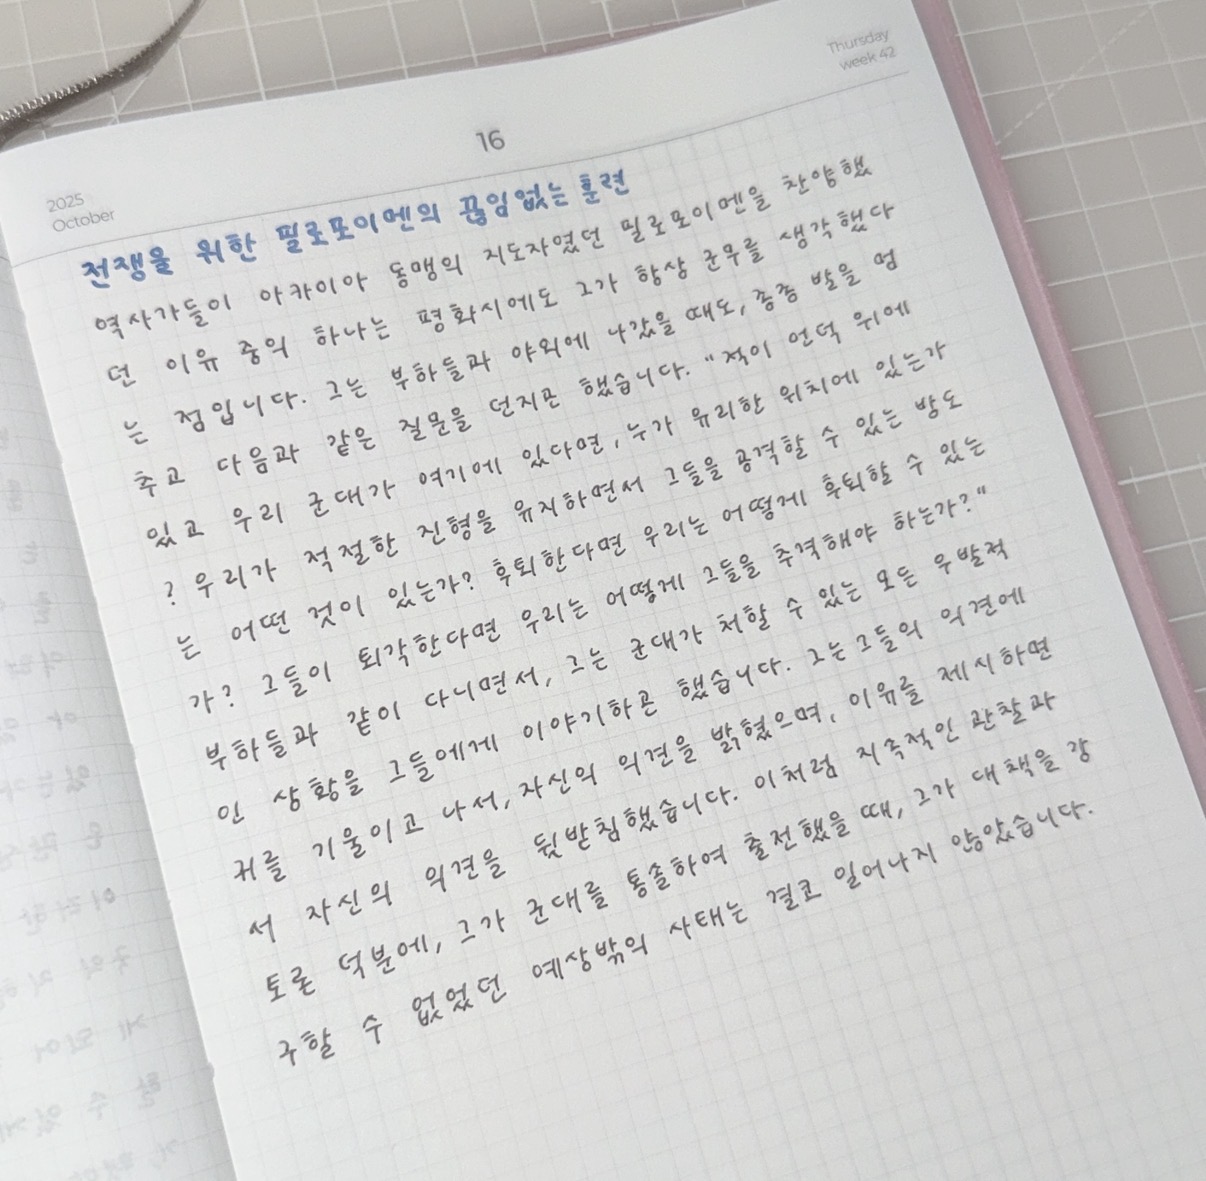 Thursday
week 42
16
2025
October
전쟁을 위한 필로포이멘의 끊임없는 훈련
역사가들이 아카이아 동맹의 지도자였던 필로포이멘을 찬양했
던 이유 중의 하나는 평화시에도 그가 항상 군무를 생각했다
는 점입니다. 그는 부하들과 야외에 나갔을 때도, 종종 발을 멈
추고 다음과 같은 질문을 던지곤 했습니다. "적이 언덕 위에
있고 우리 군대가 여기에 있다면, 누가 유리한 위치에 있는가
? 우리가 적절한 진형을 유지하면서 그들을 공격할 수 있는 방도
는 어떤 것이 있는가? 후퇴한다면 우리는 어떻게 후퇴할 수 있는
가? 그들이 퇴각한다면 우리는 어떻게 그들을 추격해야 하는가?"
부하들과 같이 다니면서, 그는 군대가 처할 수 있는 모든 우발적
인 상황을 그들에게 이야기하곤 했습니다. 그는 그들의 의견에
귀를 기울이고 나서, 자신의 의견을 밝혔으며, 이유를 제시하면
서 자신의 의견을 뒷받침했습니다. 이처럼 지속적인 관찰과
토론 덕분에, 그가 군대를 통솔하여 출전했을 때, 그가 대책을 강
구할 수 없었던 예상밖의 사태는 결코 일어나지 않았습니다.